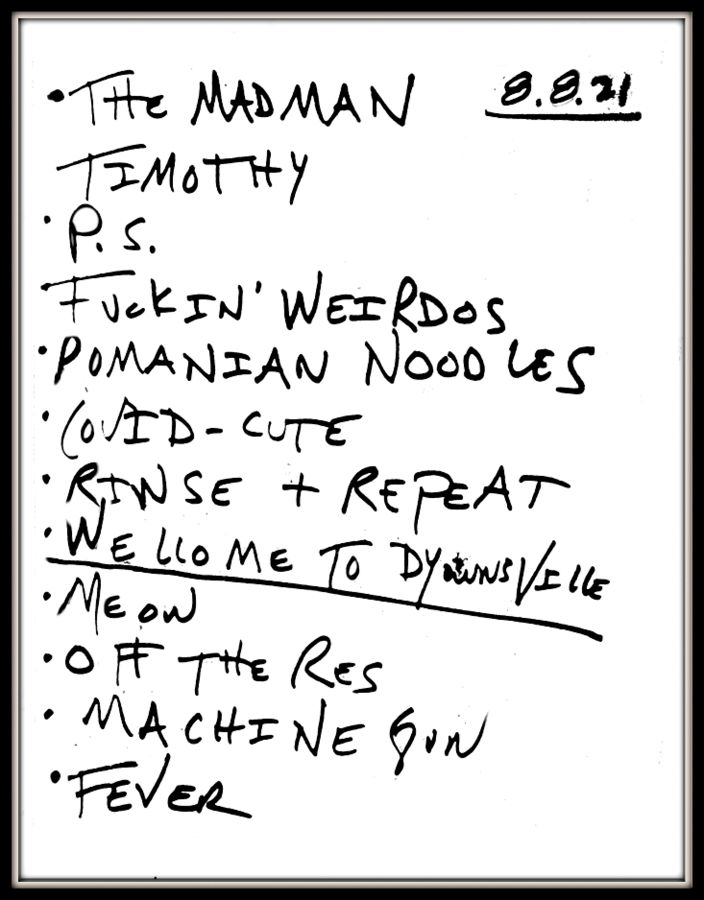 • THE MADMAN 8.8.21
TIMOTHY
• P.S.
• FUCKIN' WEIRDOS
• POMANIAN NOODLES
• COVID-CUTE
• RINSE + REPEAT
• WELLOME TO
• MEOW
• OFF THE RES
• MACHINE GUN
• FEVER